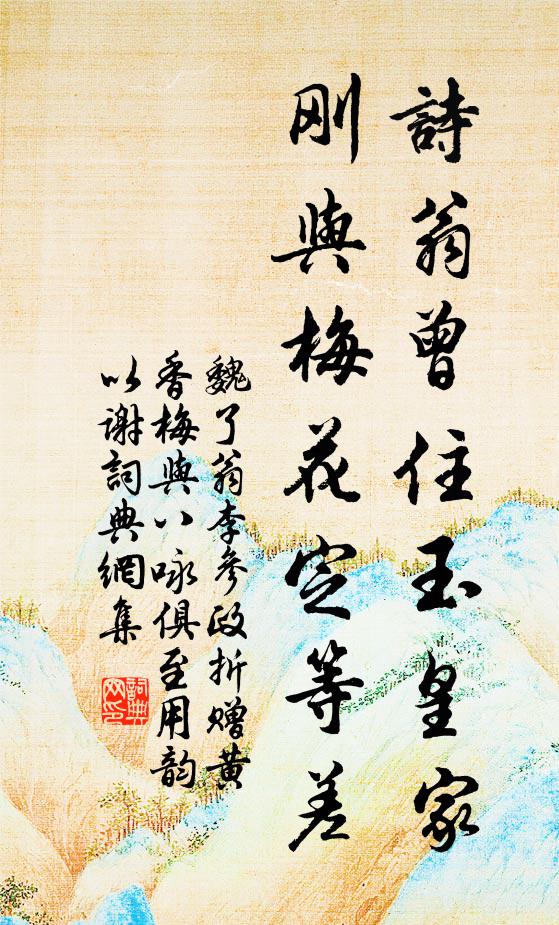 詩翁曾住玉皇家
剛與梅花定等差
魏了翁李參政折贈黄
香梅與八咏俱至用韵
以謝詞典網集
詞典
网印